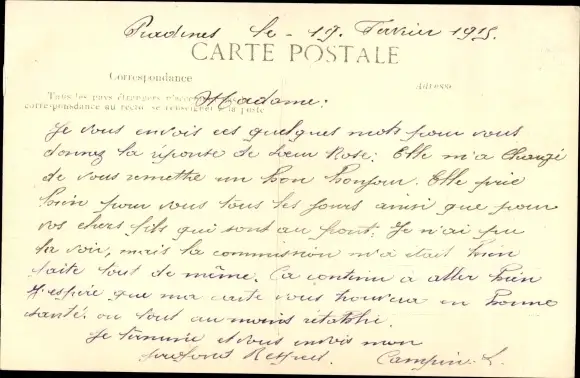 Pradines le - 19 Février 1915.
CARTE POSTALE
Correspondance
Adresse
Tous les pays étrangers n'acce
Madame:
correspondance au recto se renseigner à la poste
Je vous envois ces quelques mots pour vous
donnez la réponse de Sœur Rose: Elle m'a changé
de vous remettre un bon bonjour. Elle prie
bien pour vous tous les jours ainsi que pour
vos chers fils qui sont au front: Je n'ai pu
la voir, mais la commission m'a était bien
faite tout de même. Ca continu à aller bien
J'espère que ma carte vous trouvera en bonne
santé. ou tout au moins rétabli.
Je termine et vous envois mon
profond Respect.